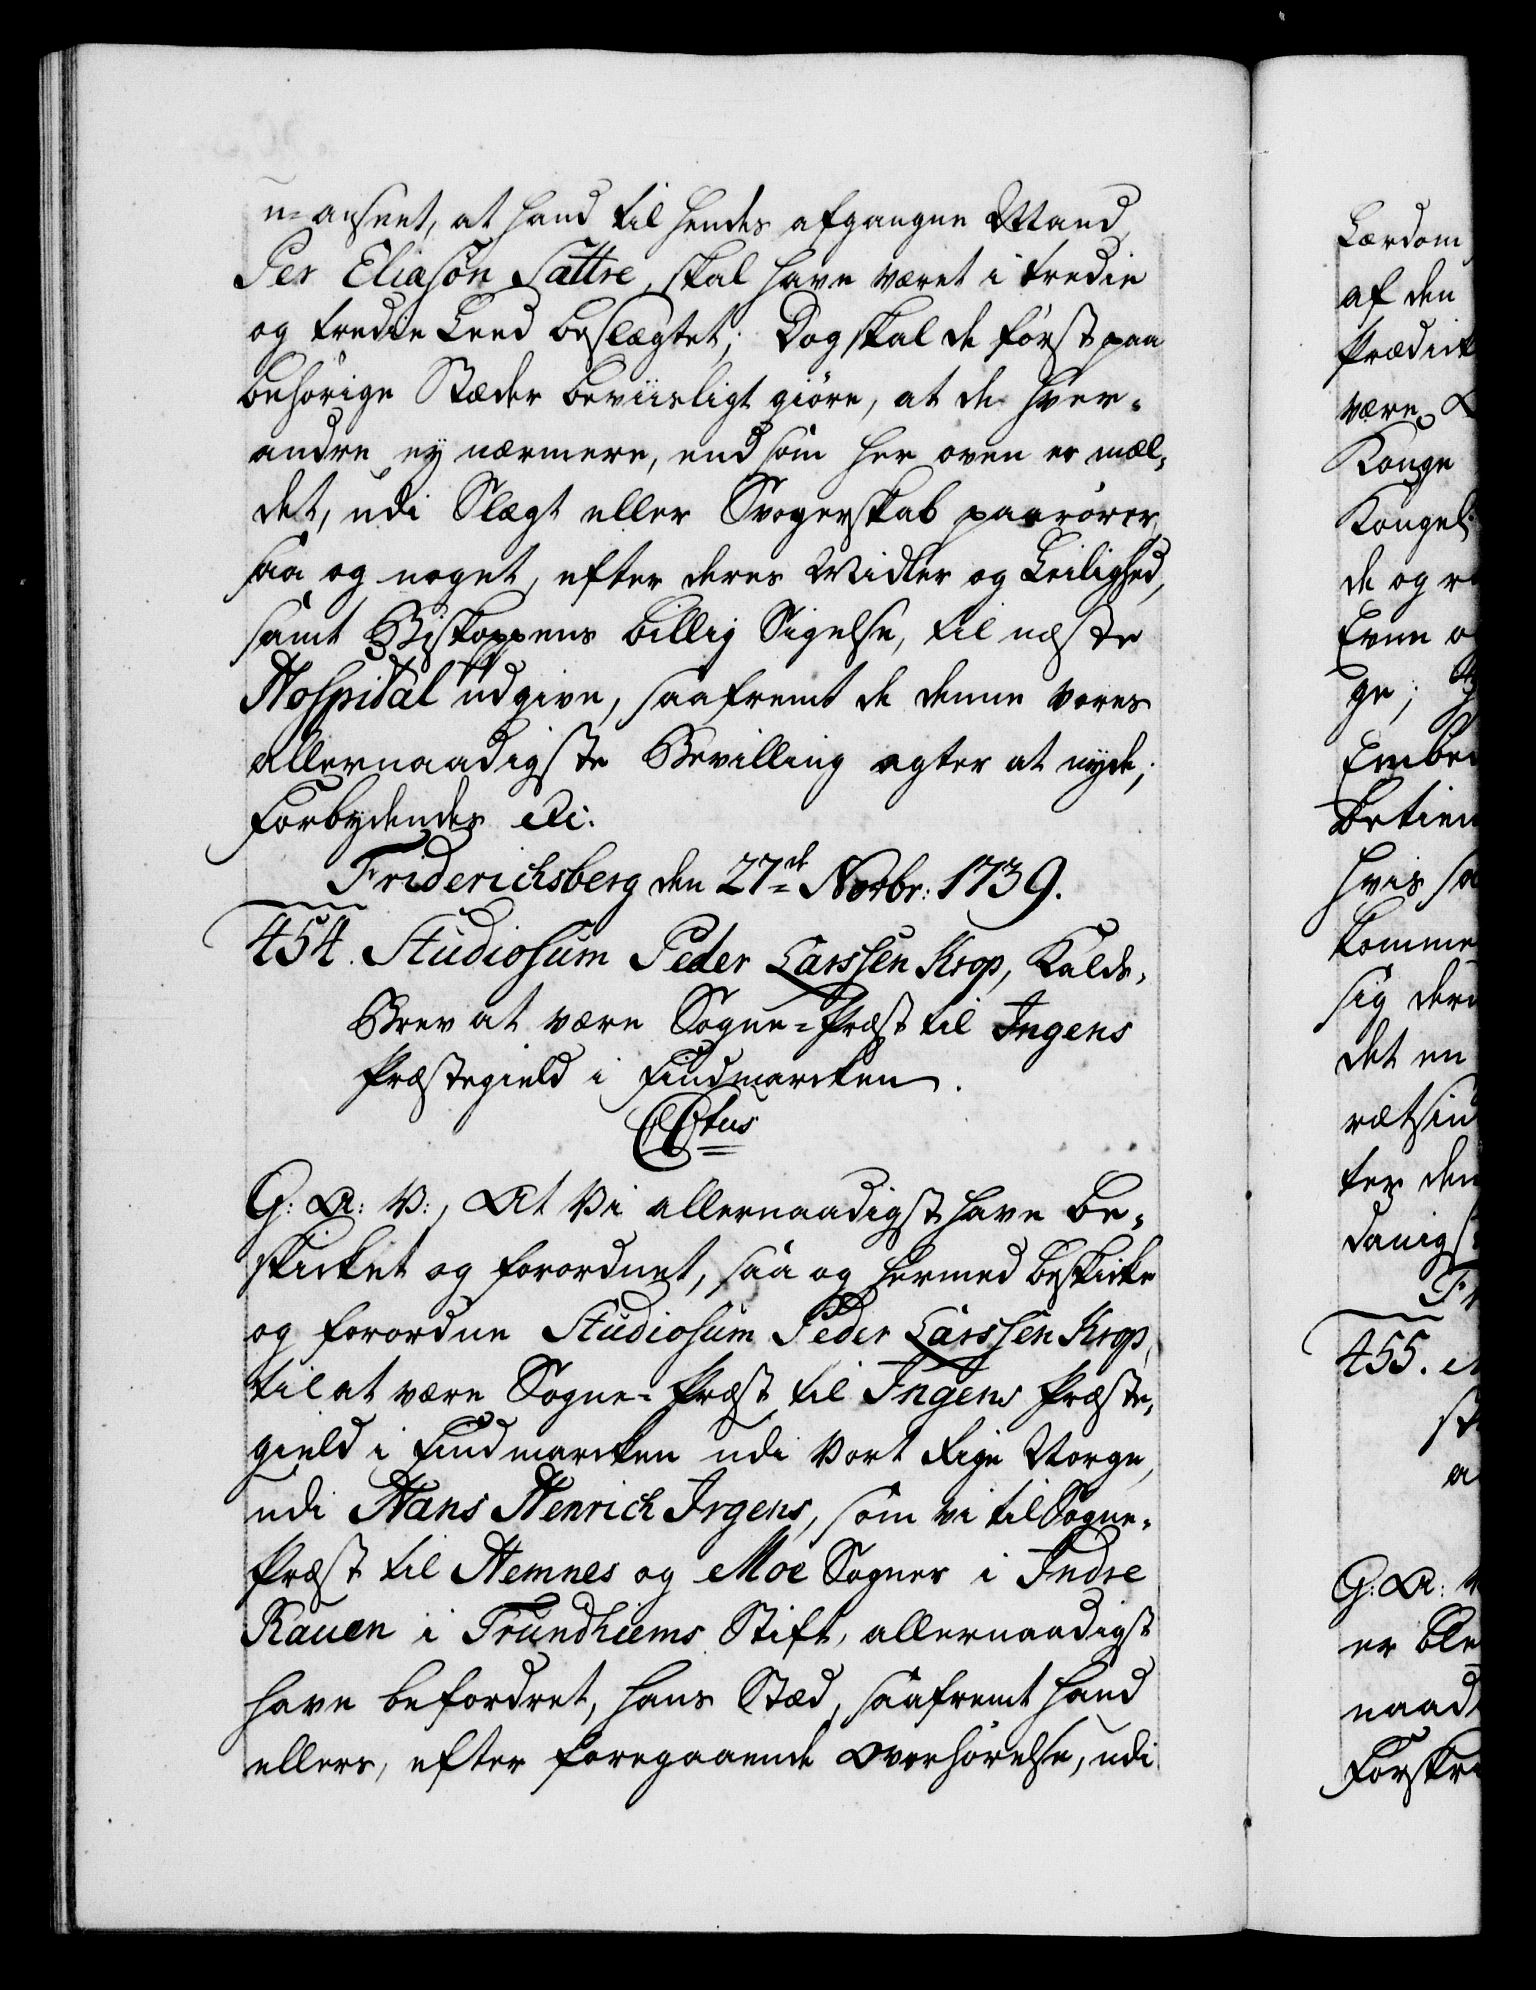 u-anseet, at hand til hendes afgangne Mand
Per Eliasøn Sættre, skal have været i tredie
og tredie Leed beslægtet; Dog skal de først paa
behörige Stæder beviisligt giöre, at de hver-
andre ey nærmere, end som her oven er mæl-
det, udi Slægt eller Svogerskab paarörer,
saa og noget, efter deres Midler og Leilighed,
samt Biskoppens billig Sigelse, til næste
Hospital udgive, saafremt de denne vores
allernaadigste Bevilling agter at nyde;
Forbydendes etc:
Friderichsberg den 27de Novbr: 1739.
454. Studiosum Peder Larssen Krop, Kalds-
Brev at være Sogne-Præst til Ingens
Præstegield i Findmarcken.
C6tus
G: A: V:, At Vi allernaadigst have be-
skicket og forordnet, saa og hermed beskicke
og forordne Studiosum Peder Larssen Krop,
til at være Sogne-Præst til Ingens Præste-
gield i Findmarcken udi Vort Rige Norge,
udi Hans Henrich Irgens, som vi til Sogne-
Præst til Hemnes og Moe Sogner i Indre
Ranen i Trundhiems Stift, allernaadigst
have befordret, hans Stæd, saafremt hand
ellers, efter foregaaende Overhörelse, udi
Lærdom
af den
Prædick
være
Konge
Kongel:
de og
Evne
ge;
Embe
betien
hvis sa
komme
sig der
det en
rætsin
ter den
danig
Fr
455.
G: A:
er ble
naad
Forskr